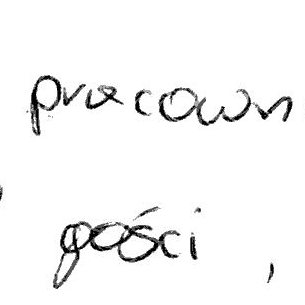 pracown
gości,